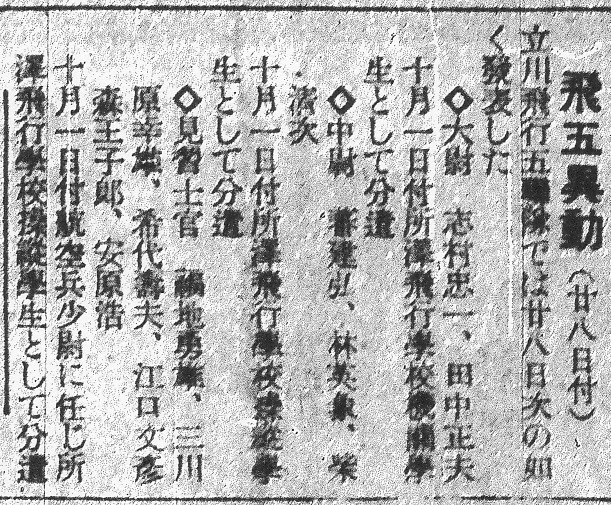 飛五異動（廿八日付）
立川飛行五聯隊では廿八日次の如
く發表した
◇大尉　志村忠一、田中正夫
十月一日付所澤飛行學校機關學
生として分遣
◇中尉　蕃建弘、林英、柴
濱次
十月一日付所澤飛行學校操縱學
生として分遣
◇見習士官　福地勇雄、三川
原幸雄、希代壽夫、江口文彦
森王子郎、安原浩
十月一日付航空兵少尉に任じ所
澤飛行學校操縱學生として分遣